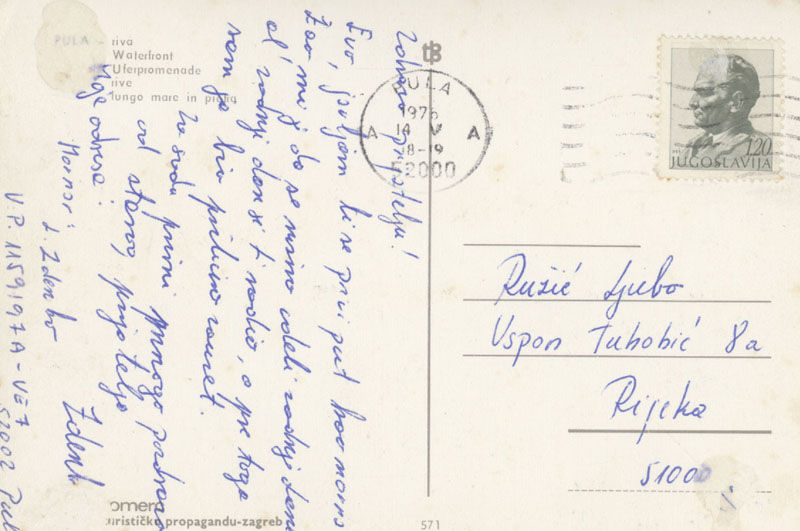 PULA - riva
Waterfront
Uferpromenade
rive
lungo mare in pietra
Zdravo prijatelju!
Evo, javljam ti se prvi put kao mornar
Žao mi je da se nismo videli zadnji dan
al' zadnji dan si ti radio, a pre toga
sam ja bio prilično zauzet.
Za sada primi mnogo pozdrava
od starog prijatelja
Zdenk
Moja adresa:
Mornar: Z. Zdenko
V.P. 1159/97A-VE7
52002 Pul
PULA
1976
14 V
18-19
52000
A A
1,20
JUGOSLAVIJA
Ružić Ljubo
Uspon Tuhobić 8a
Rijeka
51000
turističku propagandu-zagreb
571